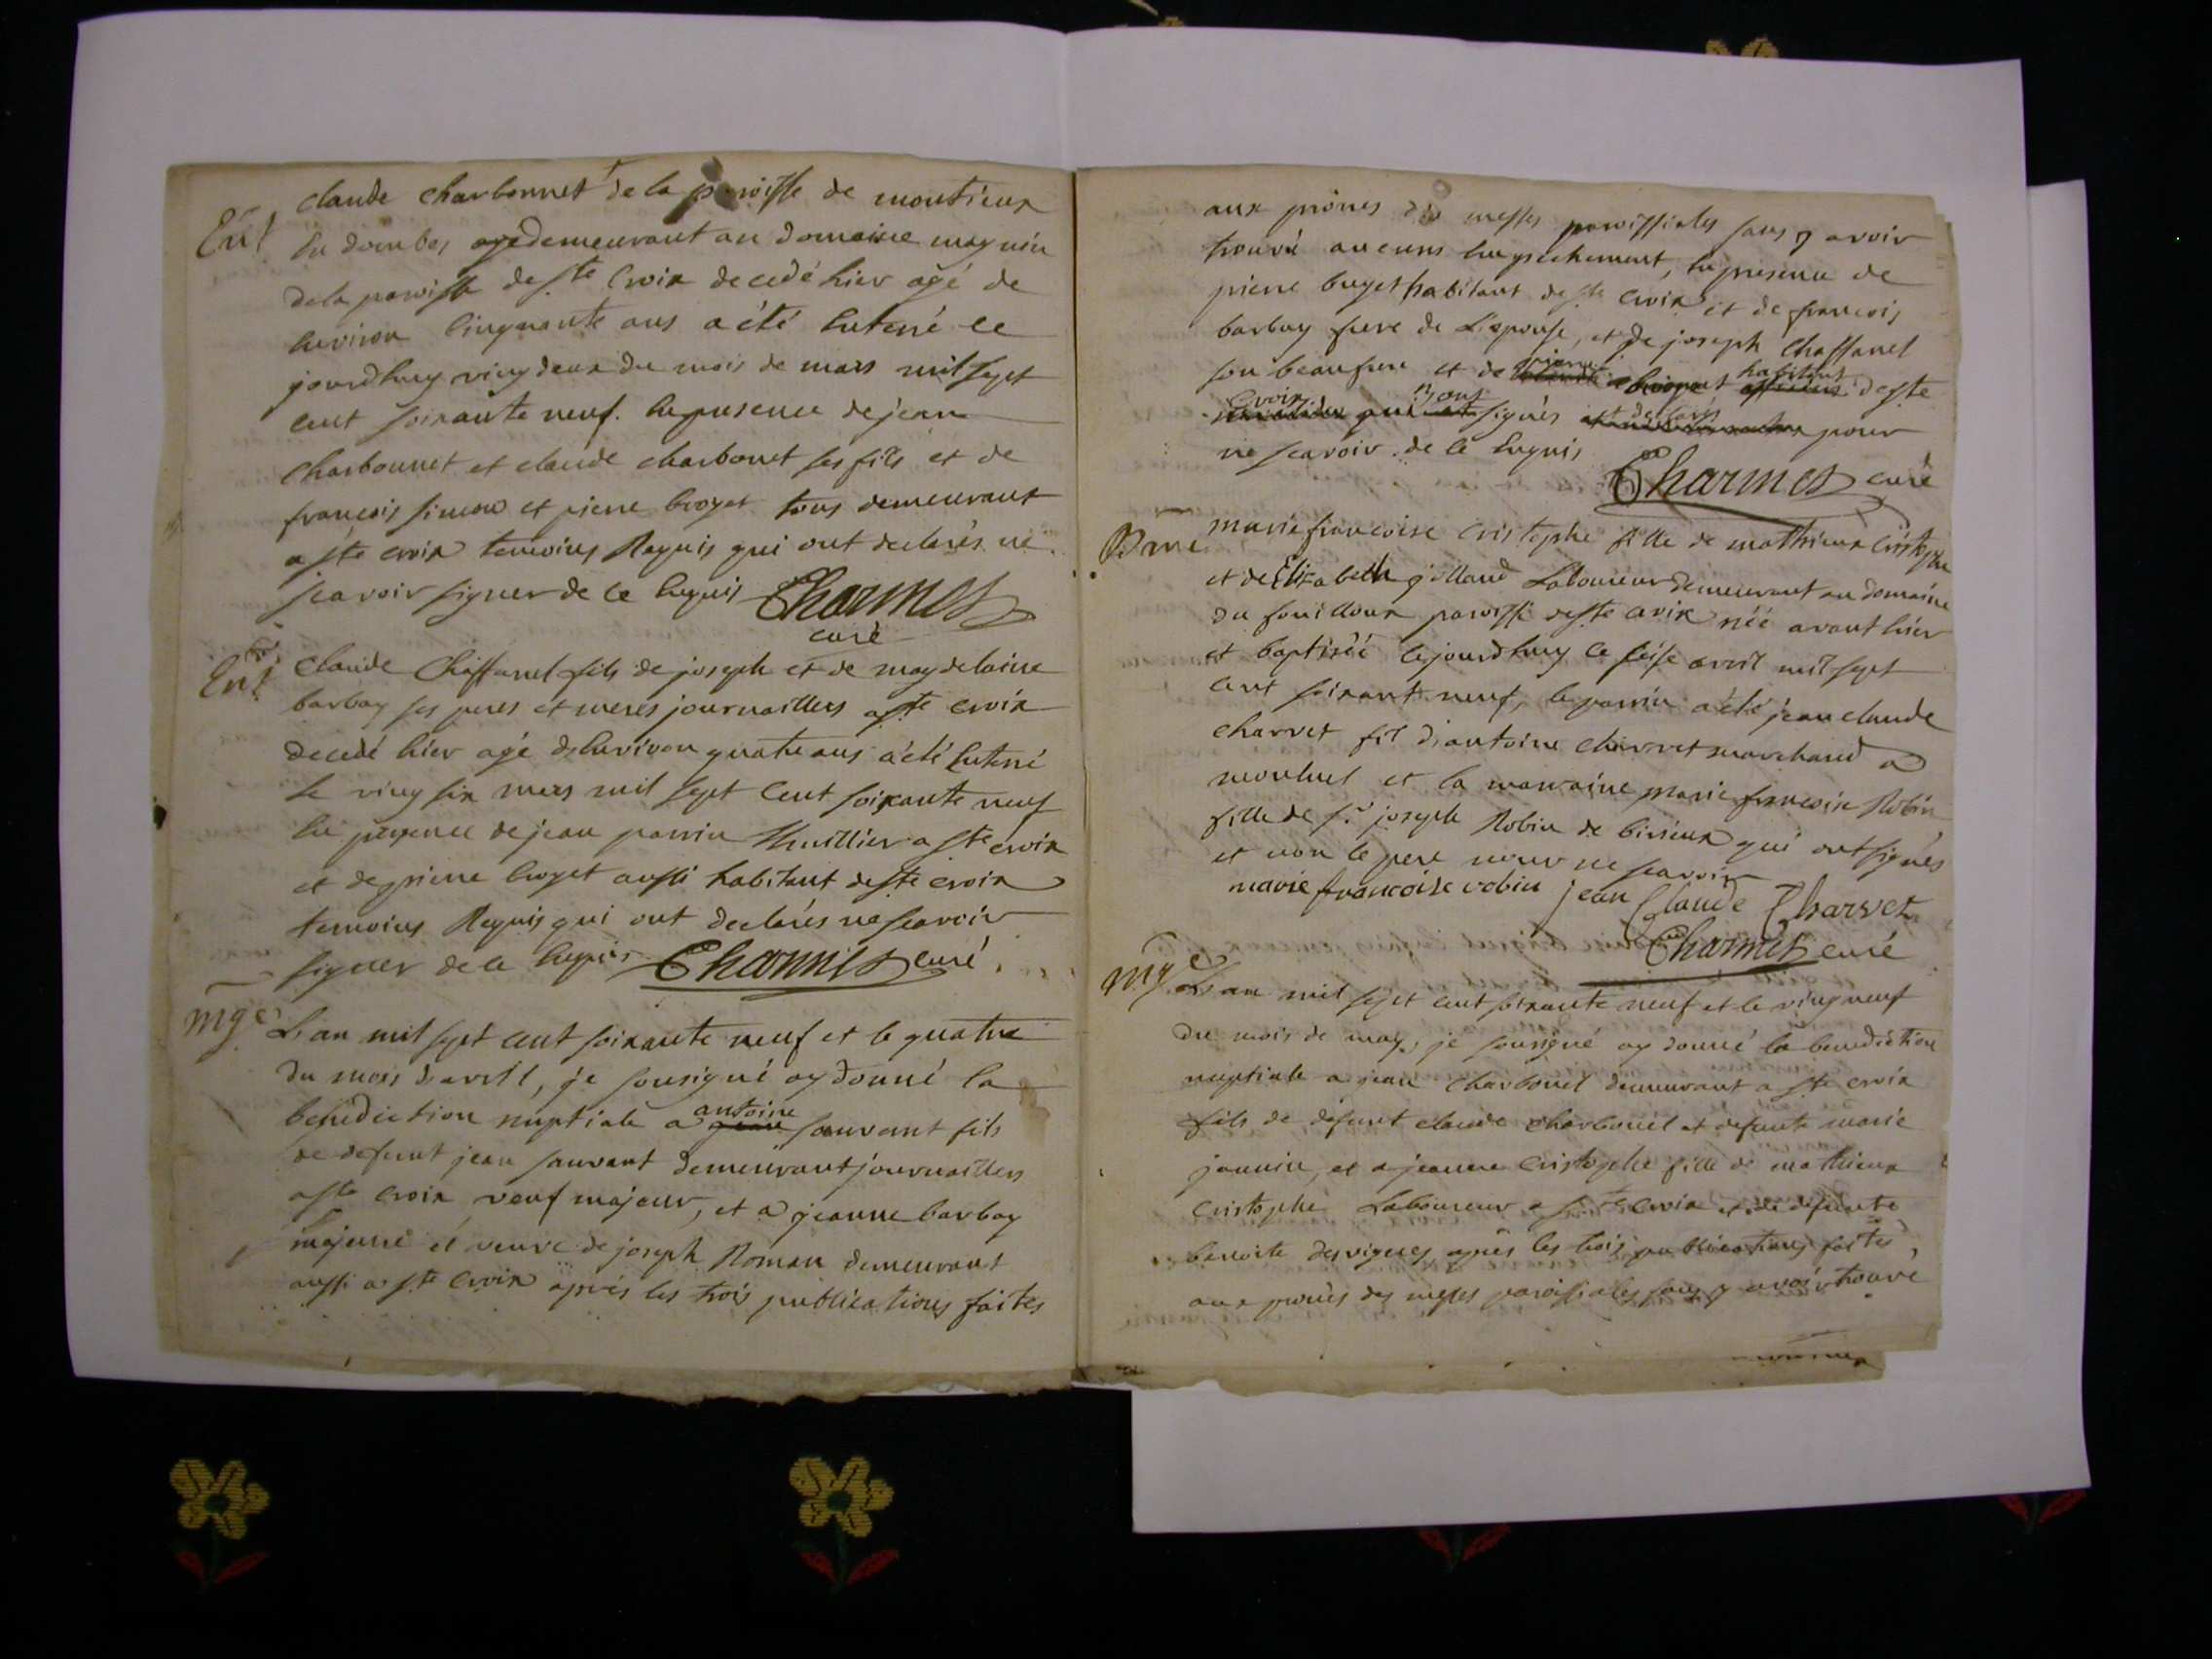 claude charbonnet de la paroisse de montieux
Ent
En dombes age demeurant au domaine magnin
de la paroisse de ste Croix decedé hier agé de
Environ Cinquante ans a été Enterré ce
jourdhuy vingdeux du mois de mars mil sept
cent soixante neuf. En presence de jean
Charbonnet et claude charbonet ses fils et de
francois simon et pierre broyet tous demeurant
a ste croix temoins Requis qui ont declarés ne
scavoir signer de ce Enquis Charmes
curé
Ent
claude Chaffanel fils de joseph et de magdelaine
barbay ses peres et meres journailliers a ste croix
decedé hier agé denviron quatre ans a été Enterré
le vingsix mars mil sept Cent soixante neuf
En presence de jean parrin thuillier a ste croix
et de pierre broyet aussi habitant de ste croix
temoins Requis qui ont declarés ne scavoir
signer de ce Enquis Charmes curé
mge
L'an mil sept cent soixante neuf et le quatre
du mois d'avril, je sousigné ay donné la
benediction nuptiale a antoine sauvant fils
de defunt jean sauvant demeurant journaillier
a ste croix veuf majeur, et a jeanne barbay
majeure et veuve de joseph Roman demeurant
aussi a ste Croix après les trois publications faites
aux prônes des messes paroissiales sans y avoir
trouvé aucuns Empechement, En presence de
pierre buget habitant de ste Croix et de francois
barbay frere de L'epouse, et de joseph Chaffanel
son beaufrere et de pierre habitant de ste
Croix qui nont signés et declarés pour
ne scavoir de ce Enquis
Charmes curé
Bme
marie francoise Cristophe fille de mathieux Cristophe
et de Elizabeth jolland Laboureur demeurant au domaine
du fouilloux paroisse de ste croix néé avant hier
et baptiséé cejourdhuy le seise avril mil sept
cent soixante neuf, le parrin a été jean claude
charvet fil d'antoine charvet marchand a
montluel et la marraine marie francoise Robin
fille de sr joseph Robin de birieux qui ont signés
et non le pere pour ne scavoir
marie francoise robin jean Claude Charvet
Charmes curé
mge
L'an mil sept cent soixante neuf et le vingneuf
du mois de may, je sousigné ay donné la benediction
nuptiale a jean Charbonet demeurant a ste croix
fils de defunt claude charbonet et defunte marie
jannin, et a jeanne Cristophe fille de mathieux
Cristophe Laboureur a ste Croix et de defunte
benoite desvignes après les trois publications faites
aux prones des messes paroissiales sans y avoir trouvé